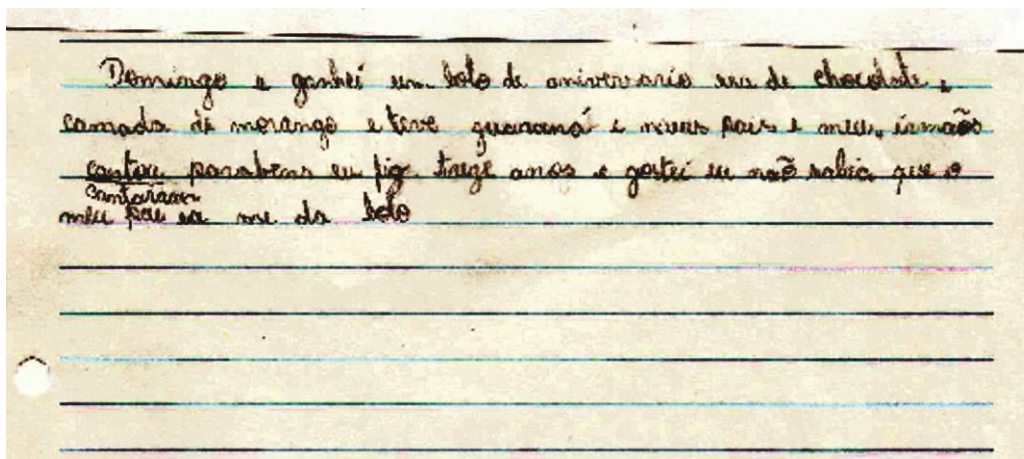 Domingo e ganhei um bolo de aniversario era de chocolate e
camada de morango e teve guaraná e meus pais e meus irmãos
cantou parabens eu fiz treze anos e gostei eu não sabia que o
cantaram
meu pai ia me da bolo